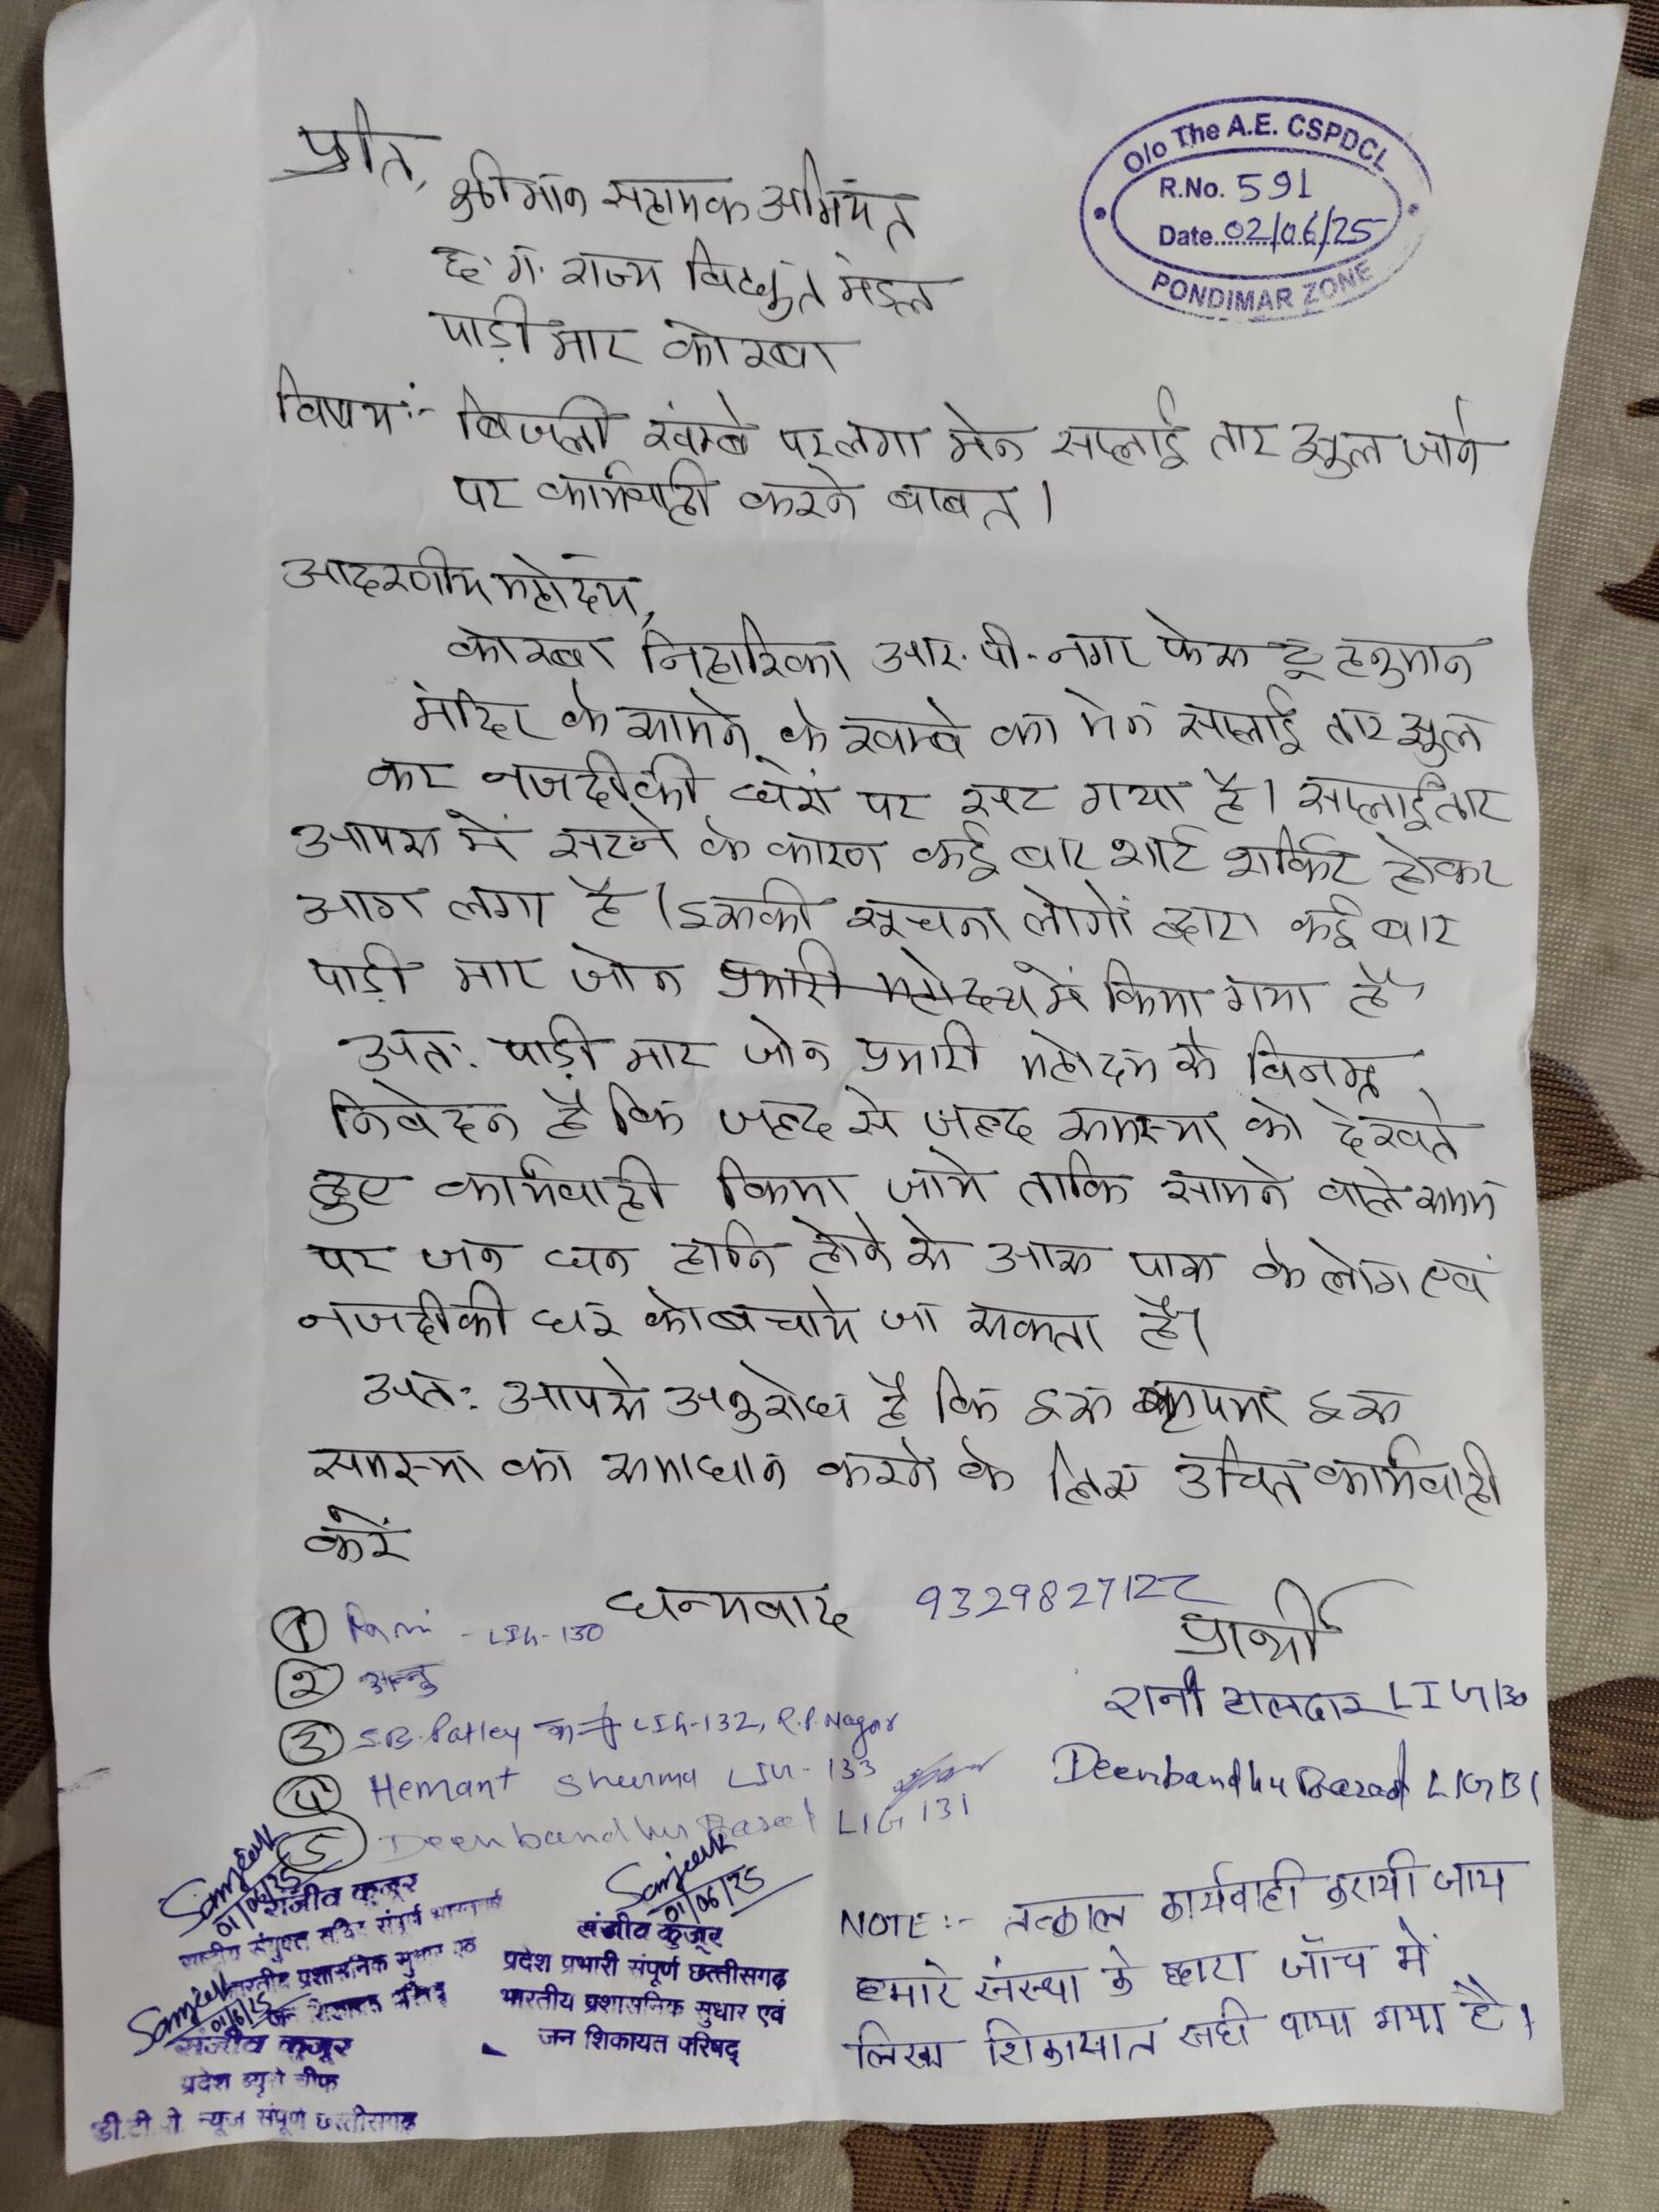 प्रति,
O/o The A.E. CSPDCL
R.No. 591
Date 02/06/25
PONDIMAR ZONE
श्रीमान सहायक अभियंत
छ.ग. राज्य विद्युत मंडल
पाड़ीमार कोरबा
विषय:- बिजली खंम्बे पर लगा मेन सप्लाई तार झुल जाने
पर कार्यवाही करने बाबत।
आदरणीय महोदय,
कोरबा निहारिका आर. पी. नगर फेस टू हनुमान
मंदिर के सामने के खम्बे का मेन सप्लाई तार झुल
कर नजदीकी घरों पर सट गया है। सप्लाई तार
आपस में सटने के कारण कई बार शार्ट शर्किट होकर
आग लगा है। इसकी सूचना लोगों द्वारा कई बार
पाड़ी मार जोन प्रभारी महोदय में किया गया है
अत: पाड़ी मार जोन प्रभारी महोदय से विनम्र
निवेदन है कि जल्द से जल्द समस्या को देखते
हुए कार्यवाही किया जाये ताकि सामने वाले समय
पर जन धन हानि होने से आस पास के लोग एवं
नजदीकी घर को बचाये जा सकता है।
अत: आपसे अनुरोध है कि इस कृपया इस
समस्या का समाधान करने के लिए उचित कार्यवाही
करें
धन्यवाद 9329827122
प्रार्थी
① Rani - LIG-130
②
रानी हालदार LIG 130
③ S.B. Patley LIG-132, R.P. Nagar
④ Hemant Sharma LIG-133
Deenbandhu LIG 131
⑤ Deenbandhu LIG 131
Sanjeev
01/06/25
संजीव कुजूर
राष्ट्रीय संयुक्त सचिव संपूर्ण
भारतीय प्रशासनिक सुधार एवं
जन शिकायत परिषद्
Sanjeev
01/6/25
संजीव कुजूर
प्रदेश ब्यूरो चीफ
डी.टी.पी. न्यूज संपूर्ण छत्तीसगढ़
Sanjeev
01/06/25
संजीव कुजूर
प्रदेश प्रभारी संपूर्ण छत्तीसगढ़
भारतीय प्रशासनिक सुधार एवं
जन शिकायत परिषद्
NOTE:- तत्काल कार्यवाही करायी जाय
हमारे संस्था के द्वारा जॉच में
लिखा शिकायात सही पाया गया है।